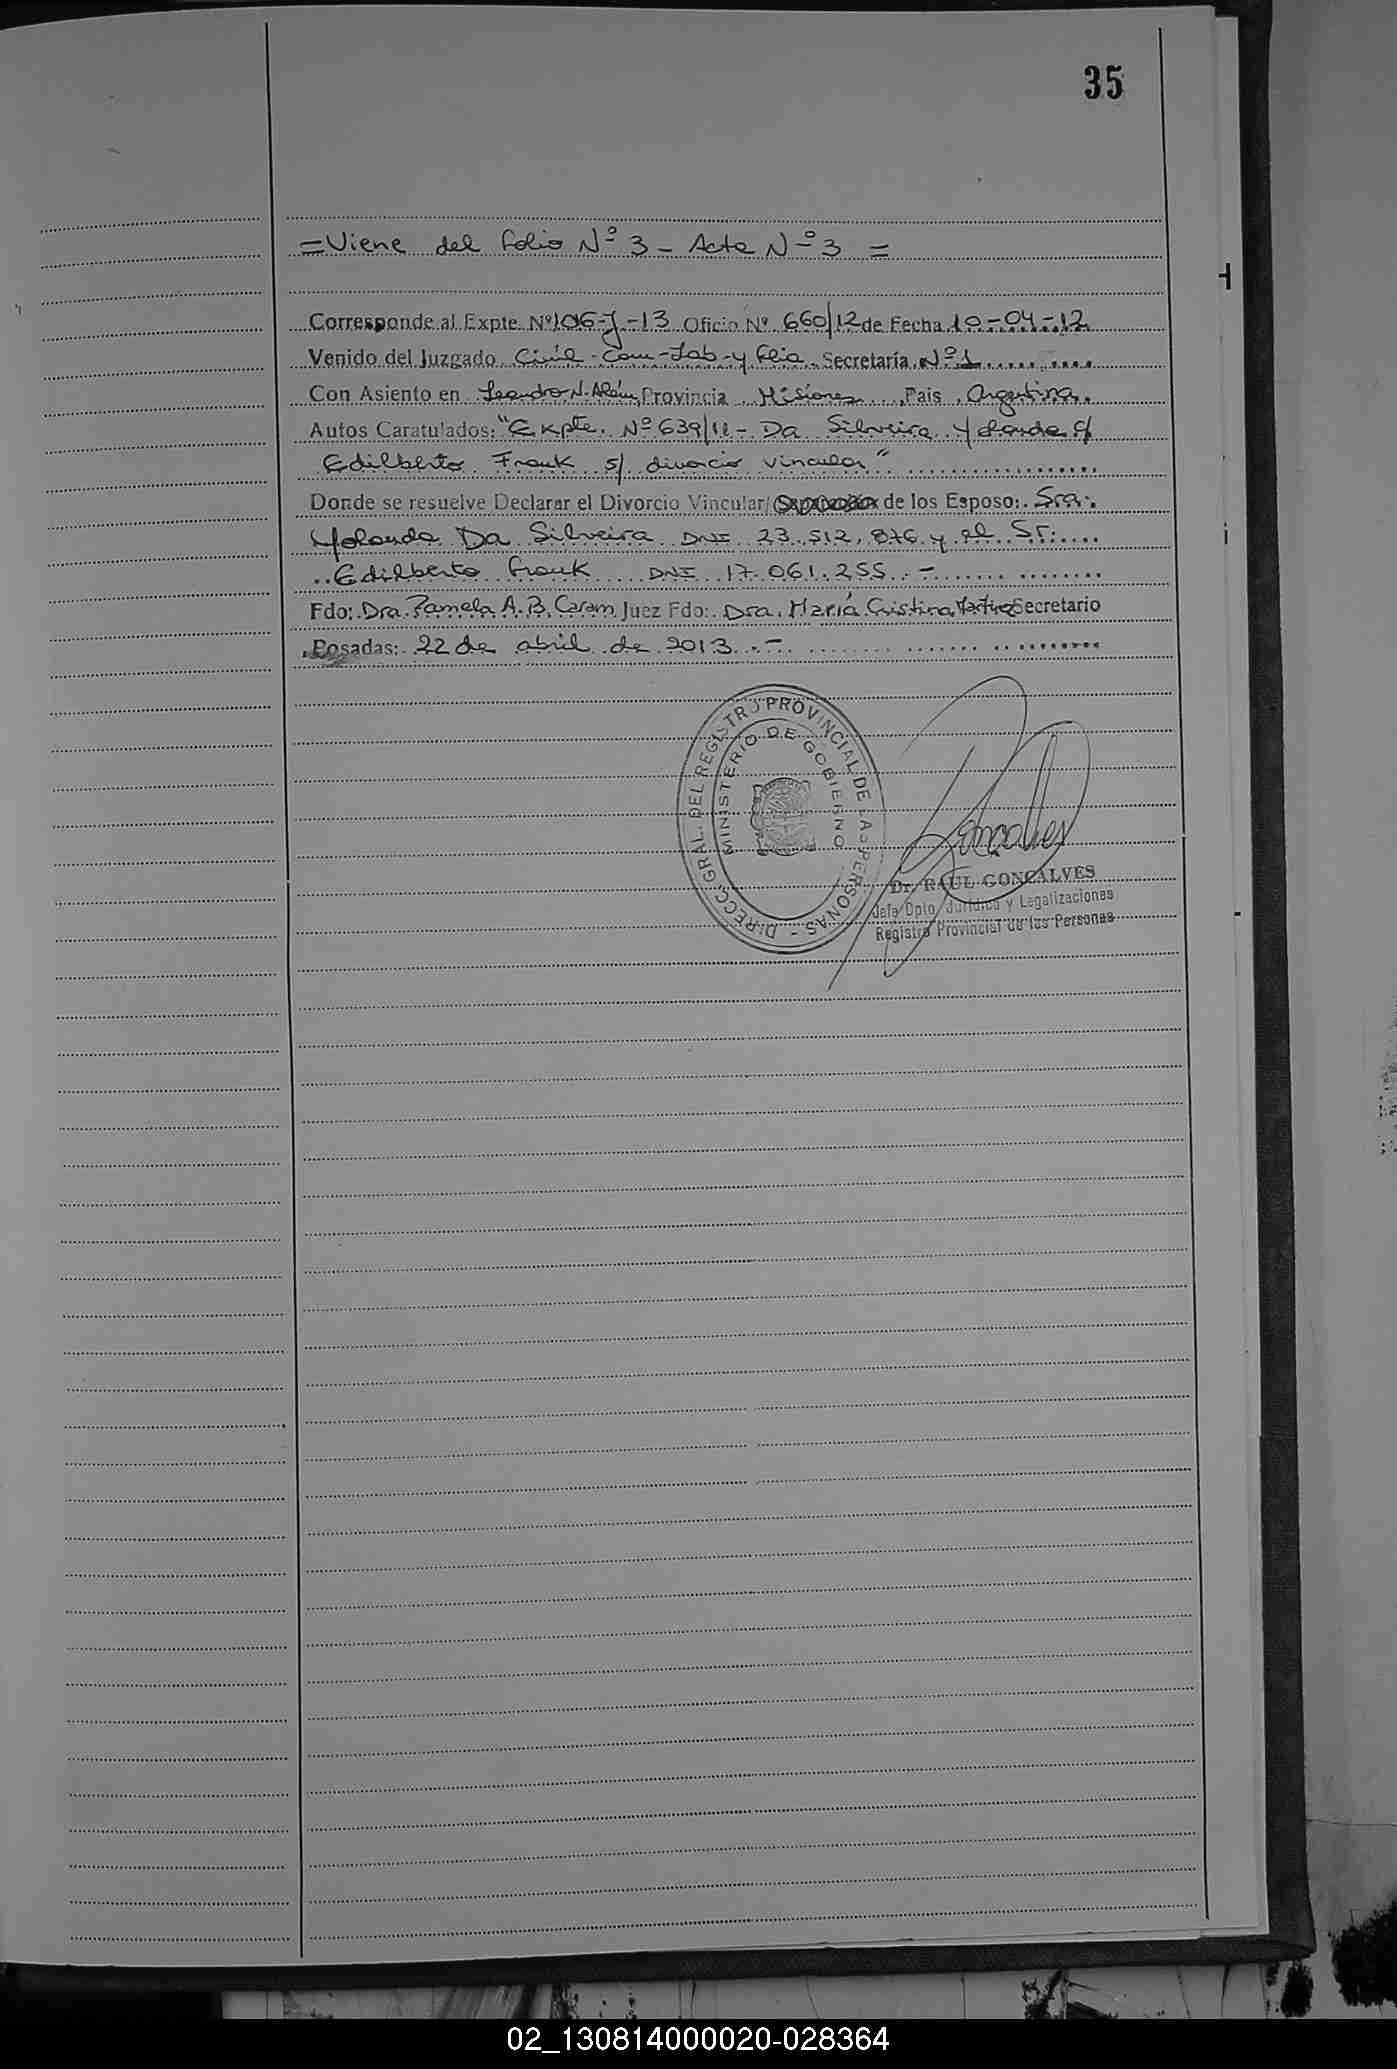 35
= Viene del folio Nº 3 - Acta Nº 3 =
Corresponde al Expte. Nº 106-J-13 Oficio Nº 660/12 de Fecha 10-04-12
Venido del Juzgado Civil-Com-Lab-y Flia. Secretaría Nº 1
Con Asiento en Leandro N. Além, Provincia Misiones, País Argentina.
Autos Caratulados: "Expte. Nº 639/11 - Da Silveira Yolanda c/
Edilberto Frank s/ divorcio vincular"
Donde se resuelve Declarar el Divorcio Vincular/ de los Esposo: Sra.
Yolanda Da Silveira DNI 23.512.876 y el Sr.
Edilberto Frank DNI 17.061.255.-
Fdo: Dra. Pamela A. B. Caram Juez Fdo: Dra. María Cristina Secretario
Posadas: 22 de abril de 2013.-
DIRECC. GRAL. DEL REGISTRO PROVINCIAL DE LAS PERSONAS -
MINISTERIO DE GOBIERNO
Goncalves
Dr. RAUL GONCALVES
Jefe Dpto. Jurídico y Legalizaciones
Registro Provincial de las Personas
02_130814000020-028364